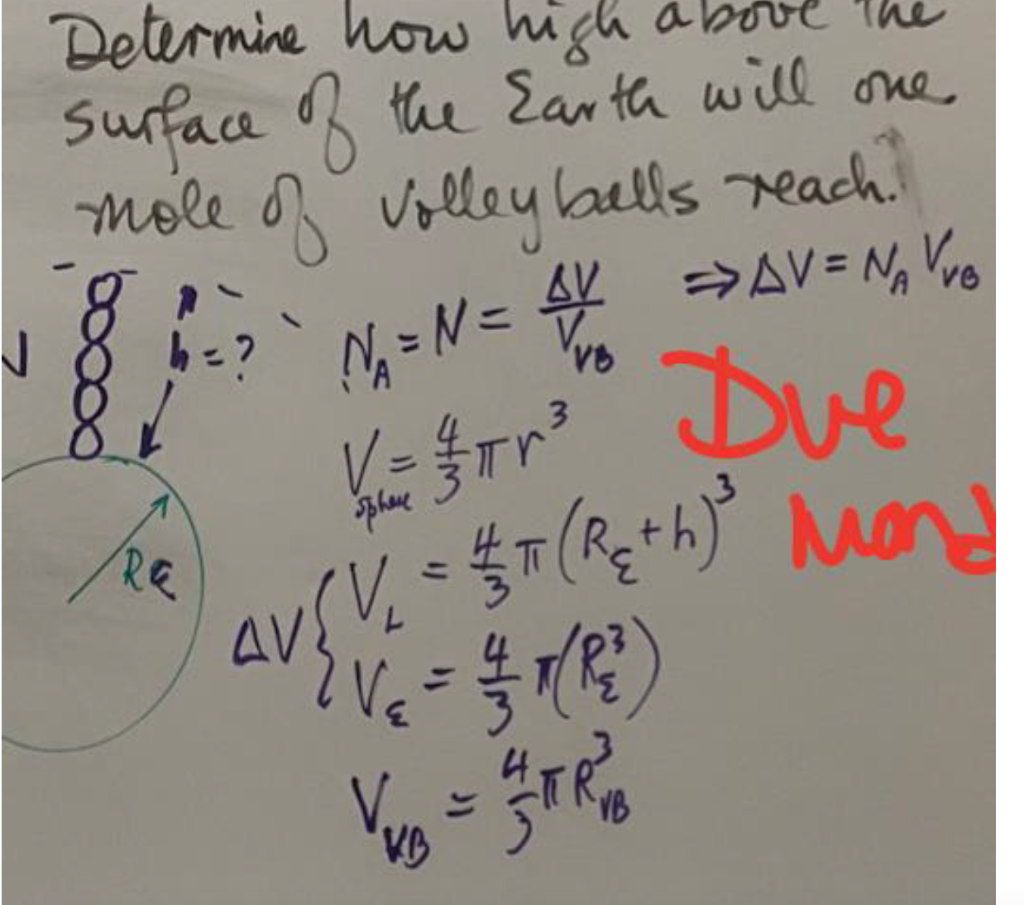 Determine how high above the
surface of the Earth will one
mole of volleyballs reach.
h = ?
N_A = N = ΔV / V_VB ⇒ ΔV = N_A V_VB
V_sphere = 4/3 π r³
Due
Mond
R_ε
ΔV { V_L = 4/3 π (R_ε + h)³
V_ε = 4/3 π (R_ε³)
V_VB = 4/3 π R_VB³